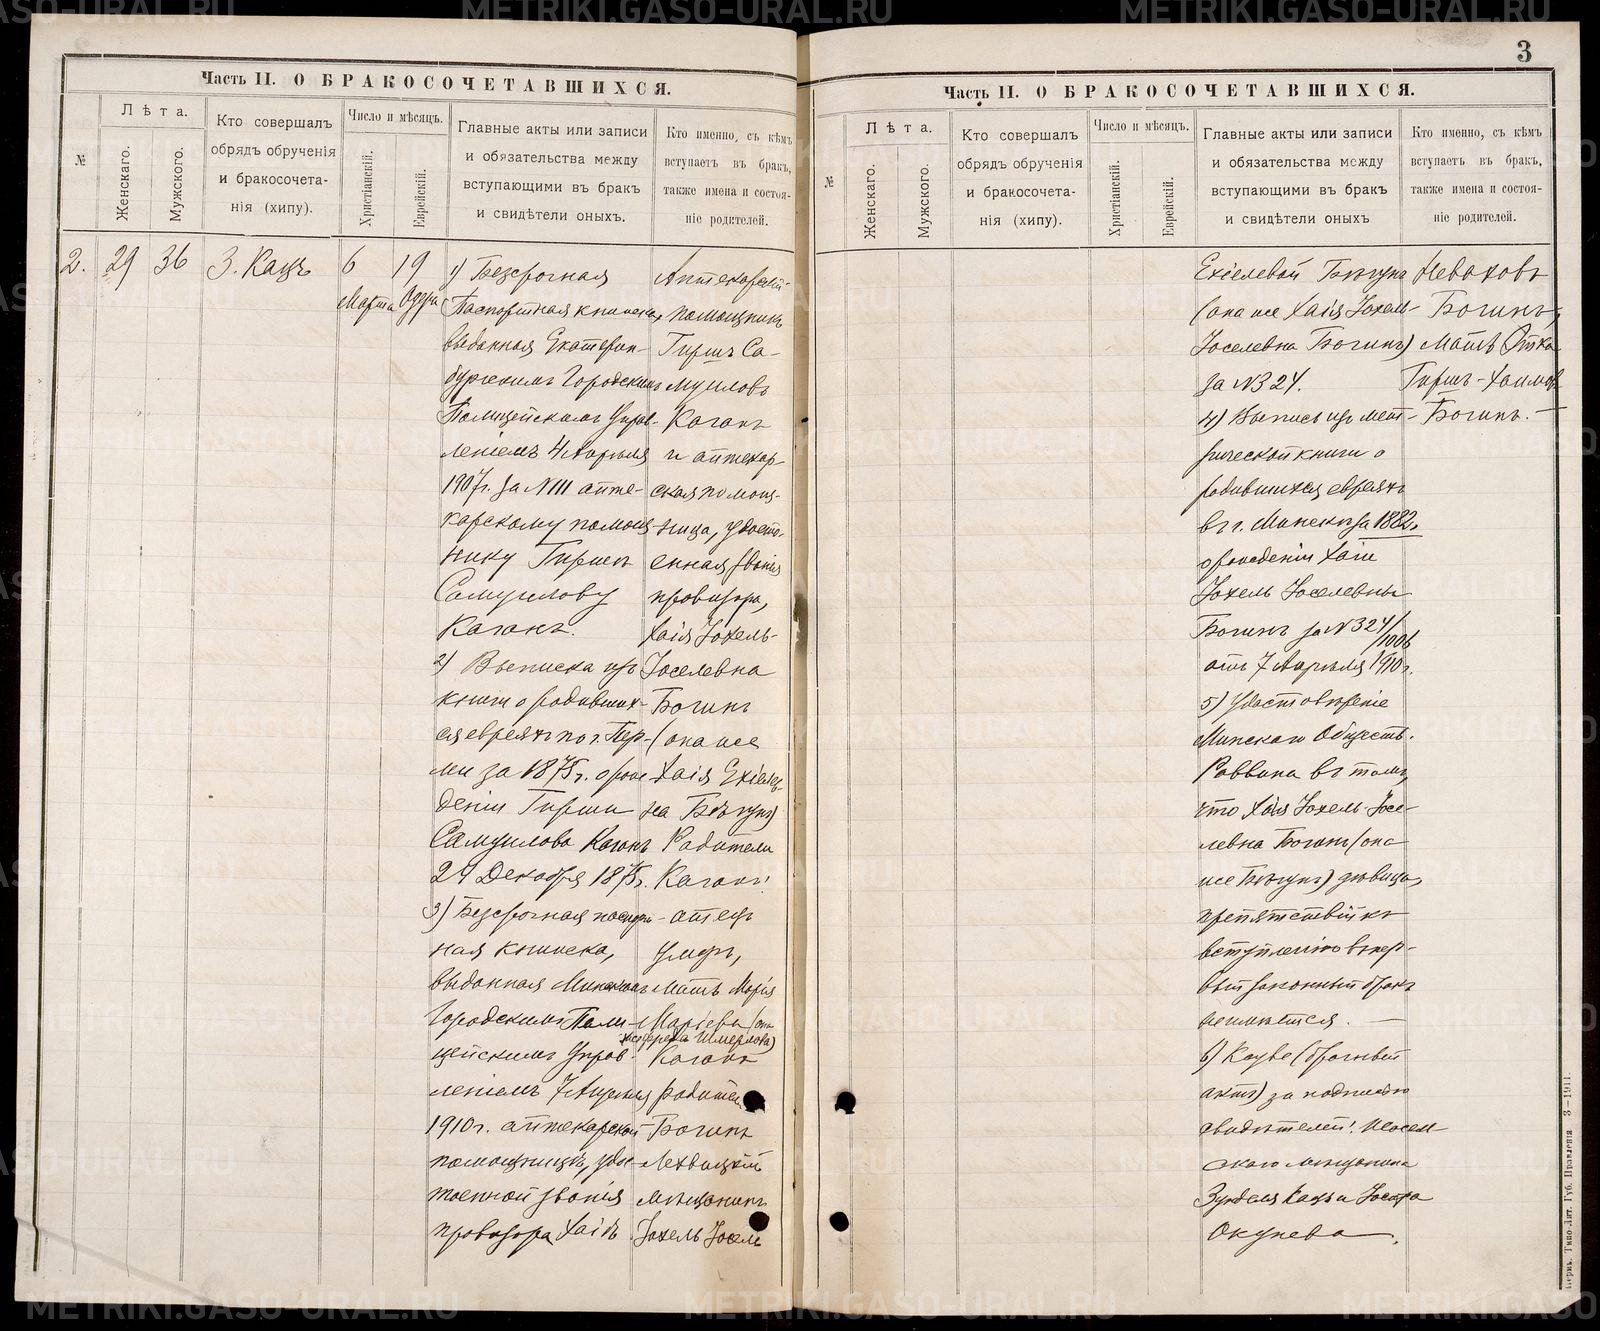 Часть II. О БРАКОСОЧЕТАВШИХСЯ.
№
Лѣта.
Женскаго.
Мужского.
Кто совершалъ
обрядъ обрученія
и бракосочета-
нія (хипу).
Число и мѣсяцъ.
Христіанскій.
Еврейскій.
Главные акты или записи
и обязательства между
вступающими въ бракъ
и свидѣтели оныхъ.
Кто именно, съ кѣмъ
вступаетъ въ бракъ,
также имена и состоя-
ніе родителей.
2.
29
36
З. Кацъ
6
Марта
19
1) Безсрочная
Паспортная книжка,
выданная Екатерин-
бургскимъ Городскимъ
Полицейскимъ Управ-
леніемъ 4 Апрѣля
1907г. за №111 апте-
карскому помощ-
нику Гиршъ
Самуилову
Каганъ.
2) Выписка изъ
книги о родивших-
ся евреяхъ по г. Пер-
ми за 1875г. о рож-
деніи Гирши
Самуилова Каганъ
24 Декабря 1875г.
3) Безсрочная паспорт-
ная книжка,
выданная Минскимъ
Городскимъ Поли-
цейскимъ Управ-
леніемъ 7 Апрѣля
1910г. аптекарской
помощницѣ, удос-
тоенной званія
провизора Хаѣ
Аптекарскій
помощникъ
Гиршъ Са-
муиловъ
Каганъ
и аптекар-
ская помощ-
ница, удосто-
енная званія
провизора,
Хая Іохель-
Іоселевна
Богинъ
(она же
Хая Ехіелев-
на Бѣгунъ)
Родители
Каганъ:
отецъ
умеръ,
Мать Марія
Маріева (она
же Фрейда Шмерлова)
Каганъ
родители
Богинъ
Мѣщанинъ
Іохель Іосель
3
Часть II. О БРАКОСОЧЕТАВШИХСЯ.
№
Лѣта.
Женскаго.
Мужского.
Кто совершалъ
обрядъ обрученія
и бракосочета-
нія (хипу).
Число и мѣсяцъ.
Христіанскій.
Еврейскій.
Главные акты или записи
и обязательства между
вступающими въ бракъ
и свидѣтели оныхъ
Кто именно, съ кѣмъ
вступаетъ въ бракъ,
также имена и состоя-
ніе родителей.
Ехіелевой Бѣгунъ
(она же Хая Іохель-
Іоселевна Богинъ)
за №324.
4) Выпись изъ мет-
рической книги о
родившихся евреяхъ
въ г. Минскѣ за 1882г.
о рожденіи Хаи
Іохель Іоселевны
Богинъ за №324/1006
отъ 7 Апрѣля 1910г.
5) Удостовѣреніе
Минскаго Обществ.
Раввина въ томъ,
что Хая Іохель-Іосе-
левна Богинъ (она
же Бѣгунъ) дѣвица,
препятствій къ
вступленію въ пер-
вый законный бракъ
не имѣется.
6) Ктубе (брачный
актъ) за подписью
свидѣтелей:
скаго мѣщанина
Зунделя Кацъ и
Окунева.
Неваховъ
Богинъ,
Мать Этка
Гиршъ-Хаимов.
Богинъ.
Пермь. Типо-Лит. Губ. Правленія 3—1911.
METRIKI.GASO-URAL.RU